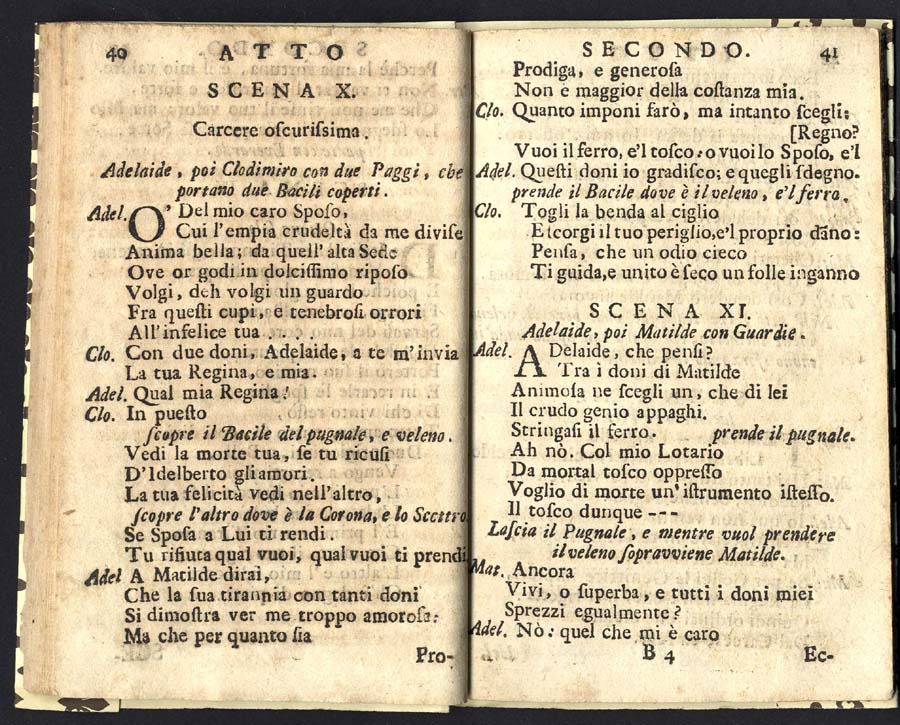 40 ATTO
SCENA X.
Carcere oscurissima.
Adelaide, poi Clodimiro con due Paggi, che
portano due Bacili coperti.
Adel. O' Del mio caro Sposo,
Cui l'empia crudeltà da me divise
Anima bella; da quell' alta Sede
Ove or godi in dolcissimo riposo
Volgi, deh volgi un guardo
Fra questi cupi, e tenebrosi orrori
All' infelice tua .....
Clo. Con due doni, Adelaide, a te m'invia
La tua Regina, e mia.
Adel. Qual mia Regina!
Clo. In puesto
scopre il Bacile del pugnale, e veleno.
Vedi la morte tua, se tu ricusi
D'Idelberto gli amori.
La tua felicità vedi nell'altro,
scopre l'altro dove è la Corona, e lo Scettro
Se Sposa a Lui ti rendi.
Tu rifiuta qual vuoi, qual vuoi ti prendi
Adel A Matilde dirai,
Che la sua tirannia con tanti doni
Si dimostra ver me troppo amorosa:
Ma che per quanto sia
Pro-
SECONDO. 41
Prodiga, e generosa
Non è maggior della costanza mia.
Clo. Quanto imponi farò, ma intanto scegli:
[Regno?
Vuoi il ferro, e'l tosco: o vuoi lo Sposo, e'l
Adel. Questi doni io gradisco; e quegli sdegno.
prende il Bacile dove è il veleno, e'l ferro.
Clo. Togli la benda al ciglio
E scorgi il tuo periglio, e'l proprio dãno:
Pensa, che un odio cieco
Ti guida, e unito è seco un folle inganno
SCENA XI.
Adelaide, poi Matilde con Guardie.
Adel. ADelaide, che pensi?
Tra i doni di Matilde
Animosa ne scegli un, che di lei
Il crudo genio appaghi.
Stringasi il ferro. prende il pugnale.
Ah nò. Col mio Lotario
Da mortal tosco oppresso
Voglio di morte un' istrumento istesso.
Il tosco dunque ---
Lascia il Pugnale, e mentre vuol prendere
il veleno sopravviene Matilde.
Mat. Ancora
Vivi, o superba, e tutti i doni miei
Sprezzi egualmente?
Adel. Nò: quel che mi è caro
B 4 Ec-